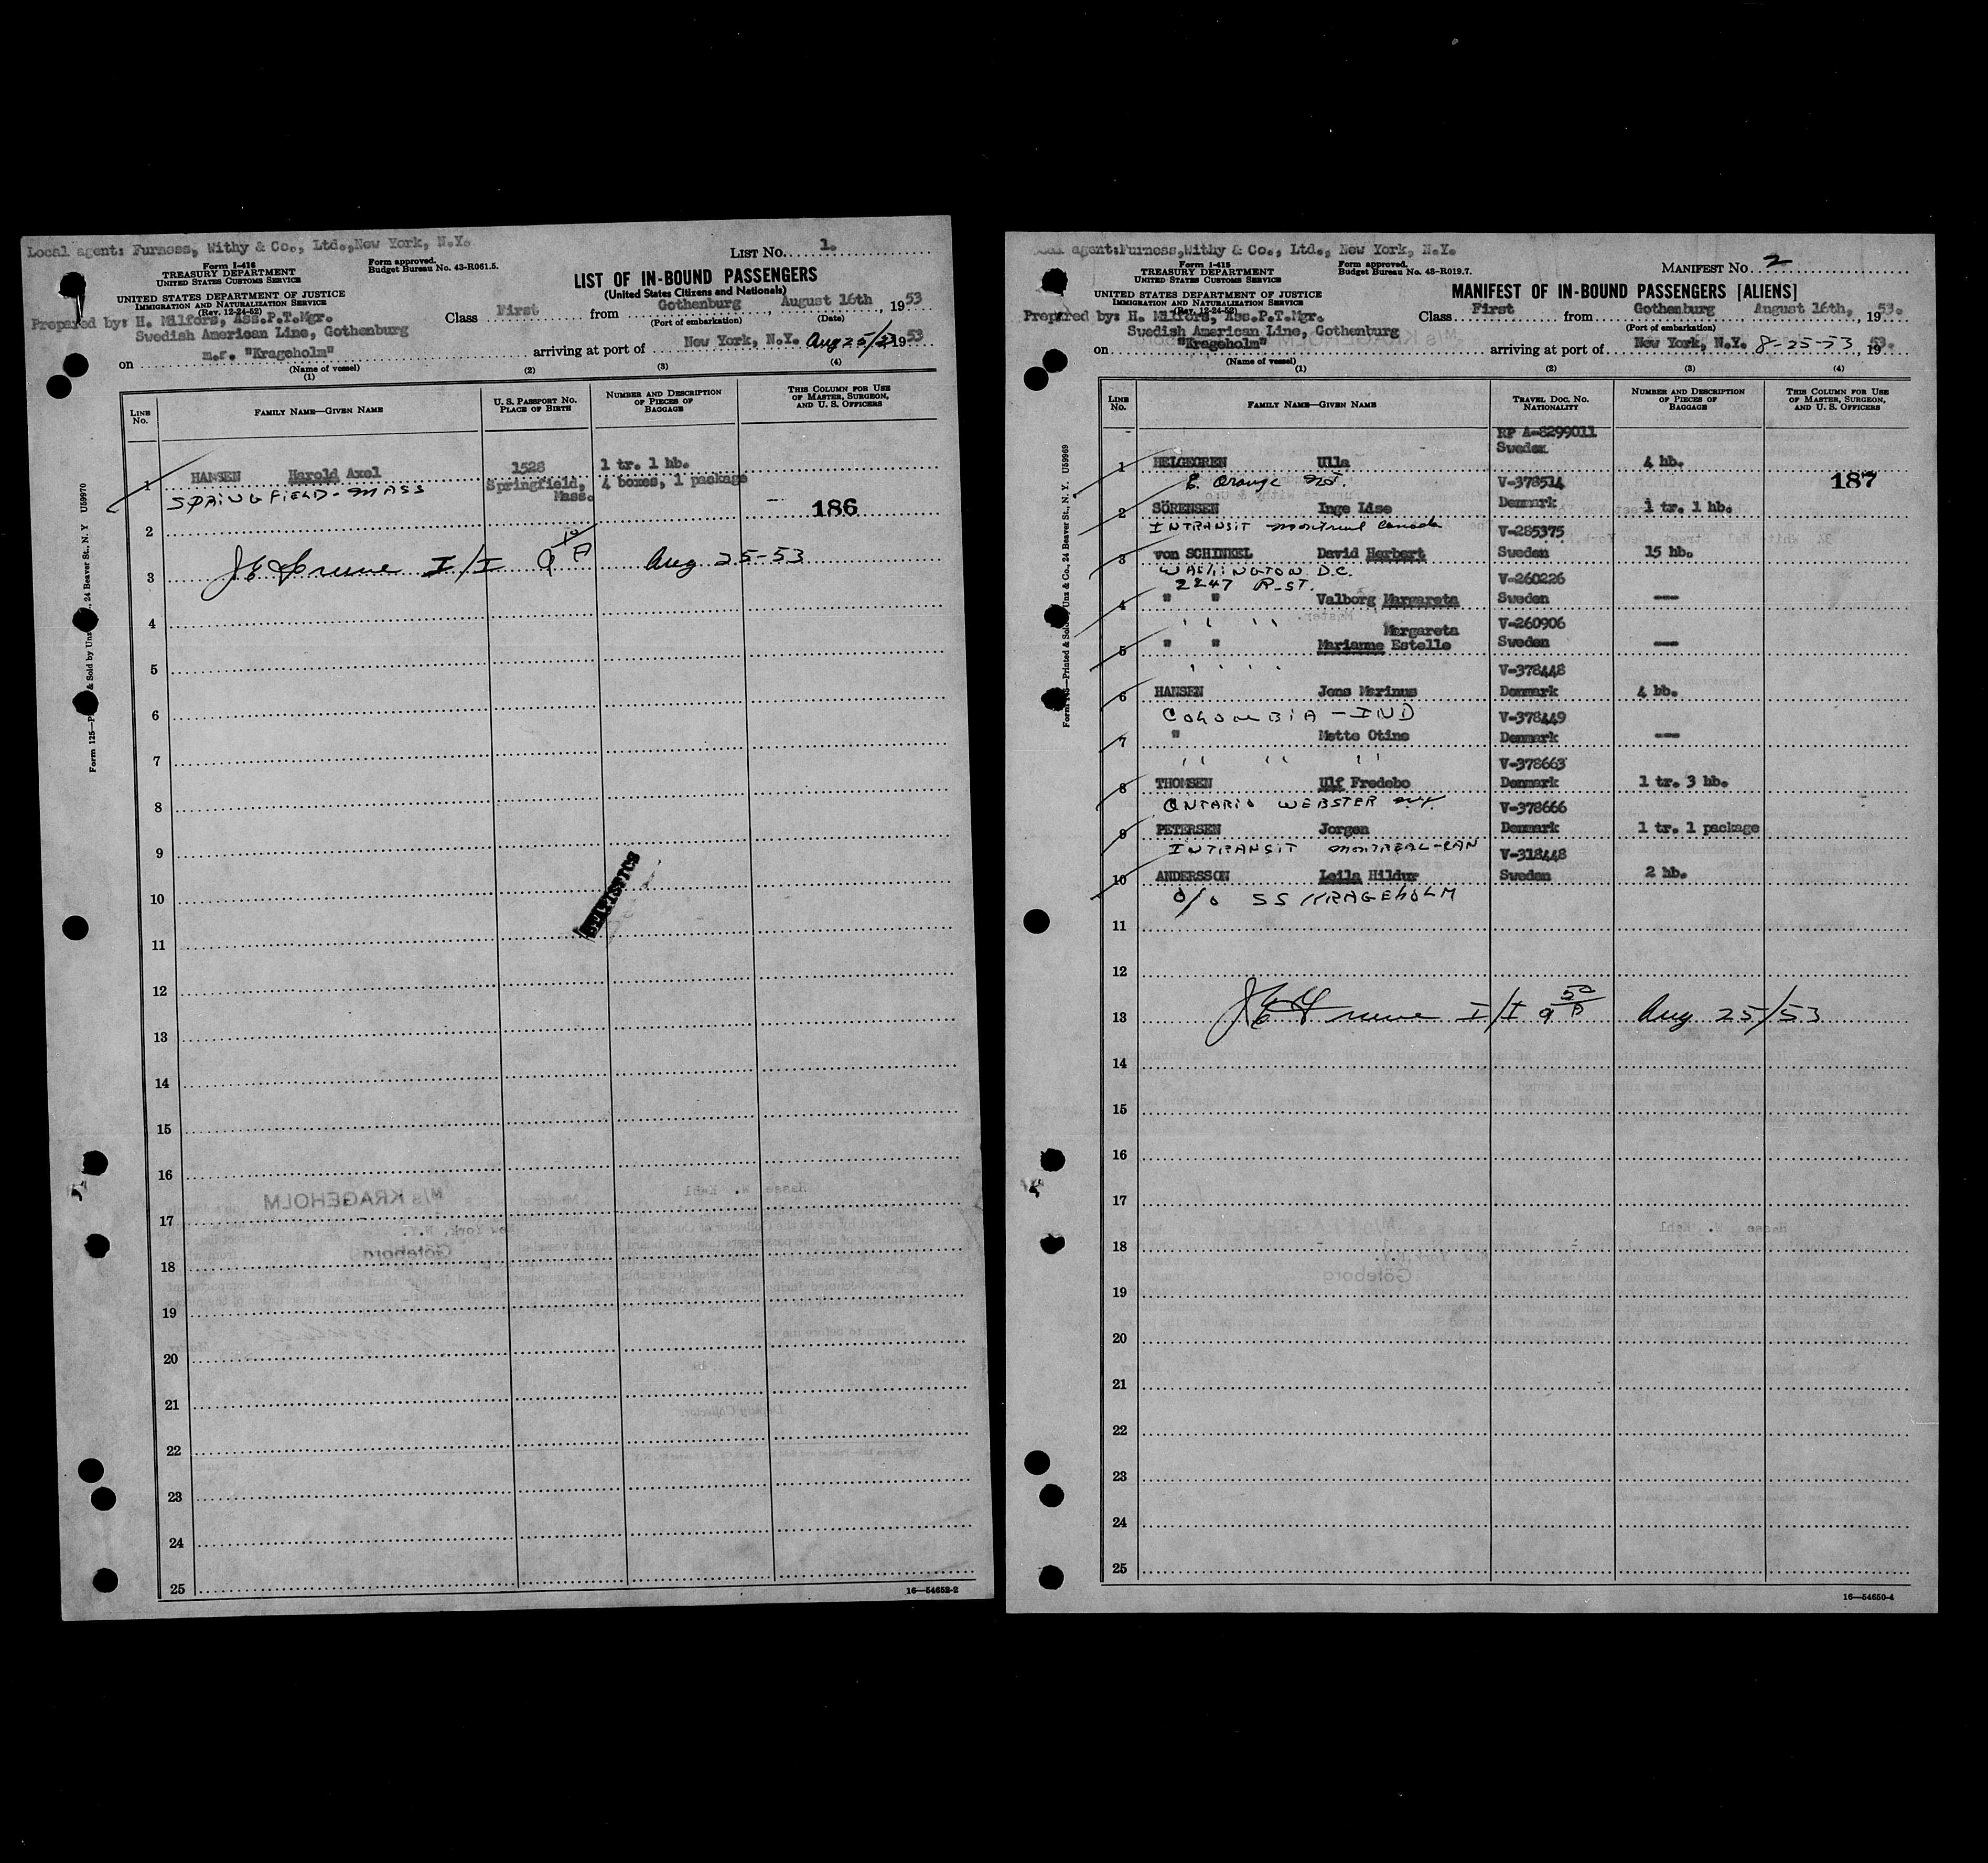 Local agent: Furness, Withy & Co., Ltd., New York, N.Y.
LIST No. 1.
Form I-416
TREASURY DEPARTMENT
UNITED STATES CUSTOMS SERVICE
Form approved.
Budget Bureau No. 43-R061.5.
LIST OF IN-BOUND PASSENGERS
(United States Citizens and Nationals)
UNITED STATES DEPARTMENT OF JUSTICE
IMMIGRATION AND NATURALIZATION SERVICE
(Rev. 12-24-52)
Class First from Gothenburg, August 16th, 1953
(Port of embarkation) (Date)
Prepared by: H. Milfors, Ass.P.T.Mgr.
Swedish American Line, Gothenburg
on m.s. "Krageholm" arriving at port of New York, N.Y. Aug 25/53 1953
(Name of vessel)
(1) (2) (3) (4)
LINE No.
FAMILY NAME—GIVEN NAME
U. S. PASSPORT NO. PLACE OF BIRTH
NUMBER AND DESCRIPTION OF PIECES OF BAGGAGE
THIS COLUMN FOR USE OF MASTER, SURGEON, AND U. S. OFFICERS
1 HANSEN Harold Axel 1528 1 tr. 1 hb.
SPRINGFIELD - MASS Springfield, Mass. 4 boxes, 1 package
186
2
3 I/I 9 10/A Aug 25-53
4
5
6
7
8
9
10
STATISTICS
11
12
13
14
15
16
17
18
19
20
21
22
23
24
25
16—54652-2
Form 125—P & Sold by Unz 24 Beaver St., N. Y U59970
Local agent: Furness, Withy & Co., Ltd., New York, N.Y.
MANIFEST No 2
Form I-415
TREASURY DEPARTMENT
UNITED STATES CUSTOMS SERVICE
Form approved.
Budget Bureau No. 43-R019.7.
MANIFEST OF IN-BOUND PASSENGERS [ALIENS]
UNITED STATES DEPARTMENT OF JUSTICE
IMMIGRATION AND NATURALIZATION SERVICE
(Rev. 12-24-52)
Class First from Gothenburg August 16th, 1953.
(Port of embarkation)
Prepared by: H. Milfors, Ass.P.T.Mgr.
Swedish American Line, Gothenburg
on "Krageholm" arriving at port of New York, N.Y. 8-25-53, 1953.
(Name of vessel)
(1) (2) (3) (4)
LINE No.
FAMILY NAME—GIVEN NAME
TRAVEL DOC. NO. NATIONALITY
NUMBER AND DESCRIPTION OF PIECES OF BAGGAGE
THIS COLUMN FOR USE OF MASTER, SURGEON, AND U. S. OFFICERS
RP A-8299011
Sweden
1 HELGEGREN Ulla 4 hb.
E. Orange NJ. V-378514 187
2 SÖRENSEN Inge Lise Denmark 1 tr. 1 hb.
INTRANSIT Montreal Canada V-285375
3 von SCHINKEL David Herbert Sweden 15 hb.
WASHINGTON D.C.
2247 R-ST. V-260226
4 " " Valborg Margareta Sweden —
V-260906
Margareta
5 " " Marianne Estelle Sweden —
V-378448
6 HANSEN Jens Marinus Denmark 4 hb.
COLOMBIA - IND V-378449
7 " Mette Otine Denmark —
V-378663
8 THOMSEN Ulf Fredebo Denmark 1 tr. 3 hb.
ONTARIO WEBSTER NY V-378666
9 PETERSEN Jorgen Denmark 1 tr. 1 package
INTRANSIT MONTREAL-CAN V-318448
10 ANDERSSON Leila Hildur Sweden 2 hb.
O/O SS KRAGEHOLM
11
12
13 I/I 9 50/A Aug 25/53
14
15
16
17
18
19
20
21
22
23
24
25
16—54650-4
Printed & Sold Unz & Co., 24 Beaver St., N. Y. U59969